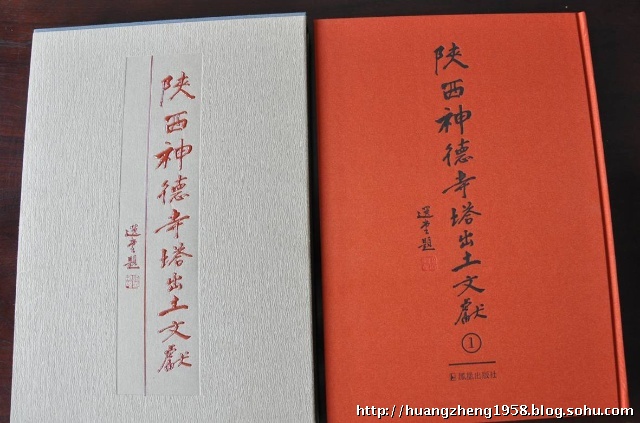 陝西神德寺塔出土文獻
選堂題
陝西神德寺塔出土文獻
①
選堂題
鳳凰出版社
http://huangzheng1958.blog.sohu.com